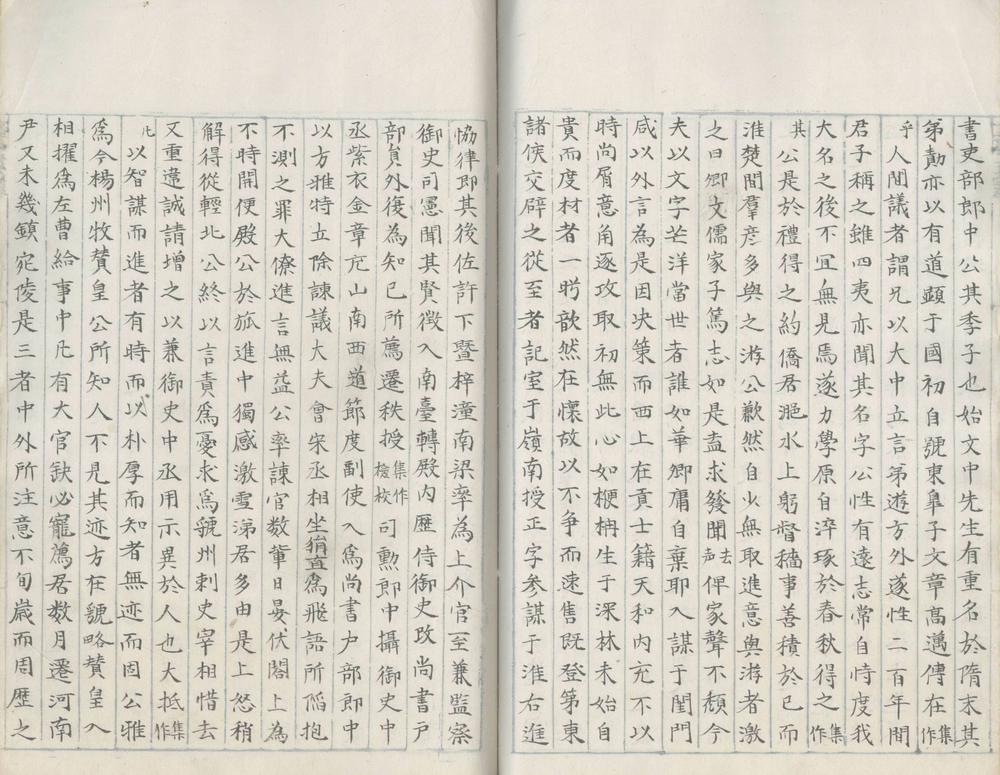 書吏部郎中公其季子也始文中先生有重名於隋末其
弟勣亦以有道顯于國初自號東臯子文章高邁傳在集作
乎人間議者謂兄以大中立言弟遊方外遂性二百年間
君子稱之雖四夷亦聞其名字公性有遠志常自忖度我
大名之後不冝無見焉遂力學原自淬琢於春秋得之集作
其公是於禮得之約僑居淝水上躬督穡事善積於已而
淮楚間羣彥多與之游公歉然自少無取進意與游者激
之曰卿文儒家子篤志如是盍求發聞去声俾家聲不頹今
夫以文字芒洋當世者誰如華卿庸自棄耶入謀于閨門
咸以外言為是因决策而西上在貢士籍天和内充不以
時尚屑意角逐攻取初無此心如楩柟生于深林未始自
貴而度材者一眄歆然在懷故以不争而速售既登第東
諸侯交辟之從至者記室于嶺南授正字參謀于淮右進
恊律郎其後佐許下暨梓潼南梁率為上介官至兼監察
御史司憲聞其賢徵入南臺轉殿内歷侍御史改尚書户
部貟外復為知已所薦遷秩授集作檢校司勲郎中攝御史中
丞紫衣金章充山南西道節度副使入爲尚書户部郎中
以方雅特立除諫議大夫會宋丞相坐狷直爲飛語所䧟抱
不測之罪大僚進言無益公率諫官數軰日晏伏閤上為
不時開便殿公於旅進中獨感激雪涕居多由是上怒稍
解得從輕北公終以言責爲憂求爲虢州刺史宰相惜去
又重違誠請增之以兼御史中丞用示異於人也大抵集作
凡以智謀而進者有時而以朴厚而知者無迹而固公雅
爲今楊州牧賛皇公所知人不見其迹方在虢略賛皇入
相擢爲左曹給事中凡有大官缺必寵薦居数月遷河南
尹又未幾鎮宛陵是三者中外所注意不旬歲而周歷之